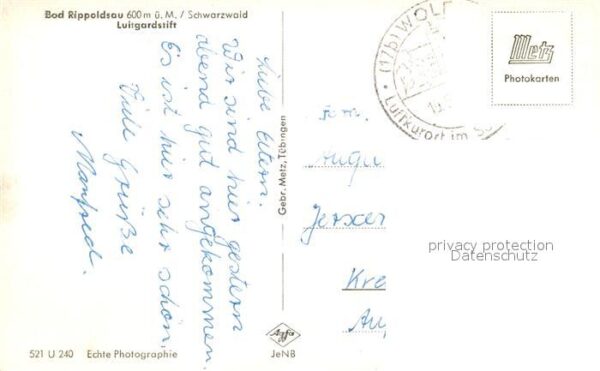 Bad Rippoldsau 600 m ü. M. / Schwarzwald
Luitgardstift
Liebe Eltern.
Wir sind hier gestern
abend gut angekommen.
Es ist hier sehr schön.
Viele Grüße
Manfred.
Gebr. Metz, Tübingen
(17b) WOLF
Luftkurort im
Metz
Photokarten
Fam.
Jerxer
Kre
privacy protection
Datenschutz
521 U 240 Echte Photographie
Agfa
JeNB